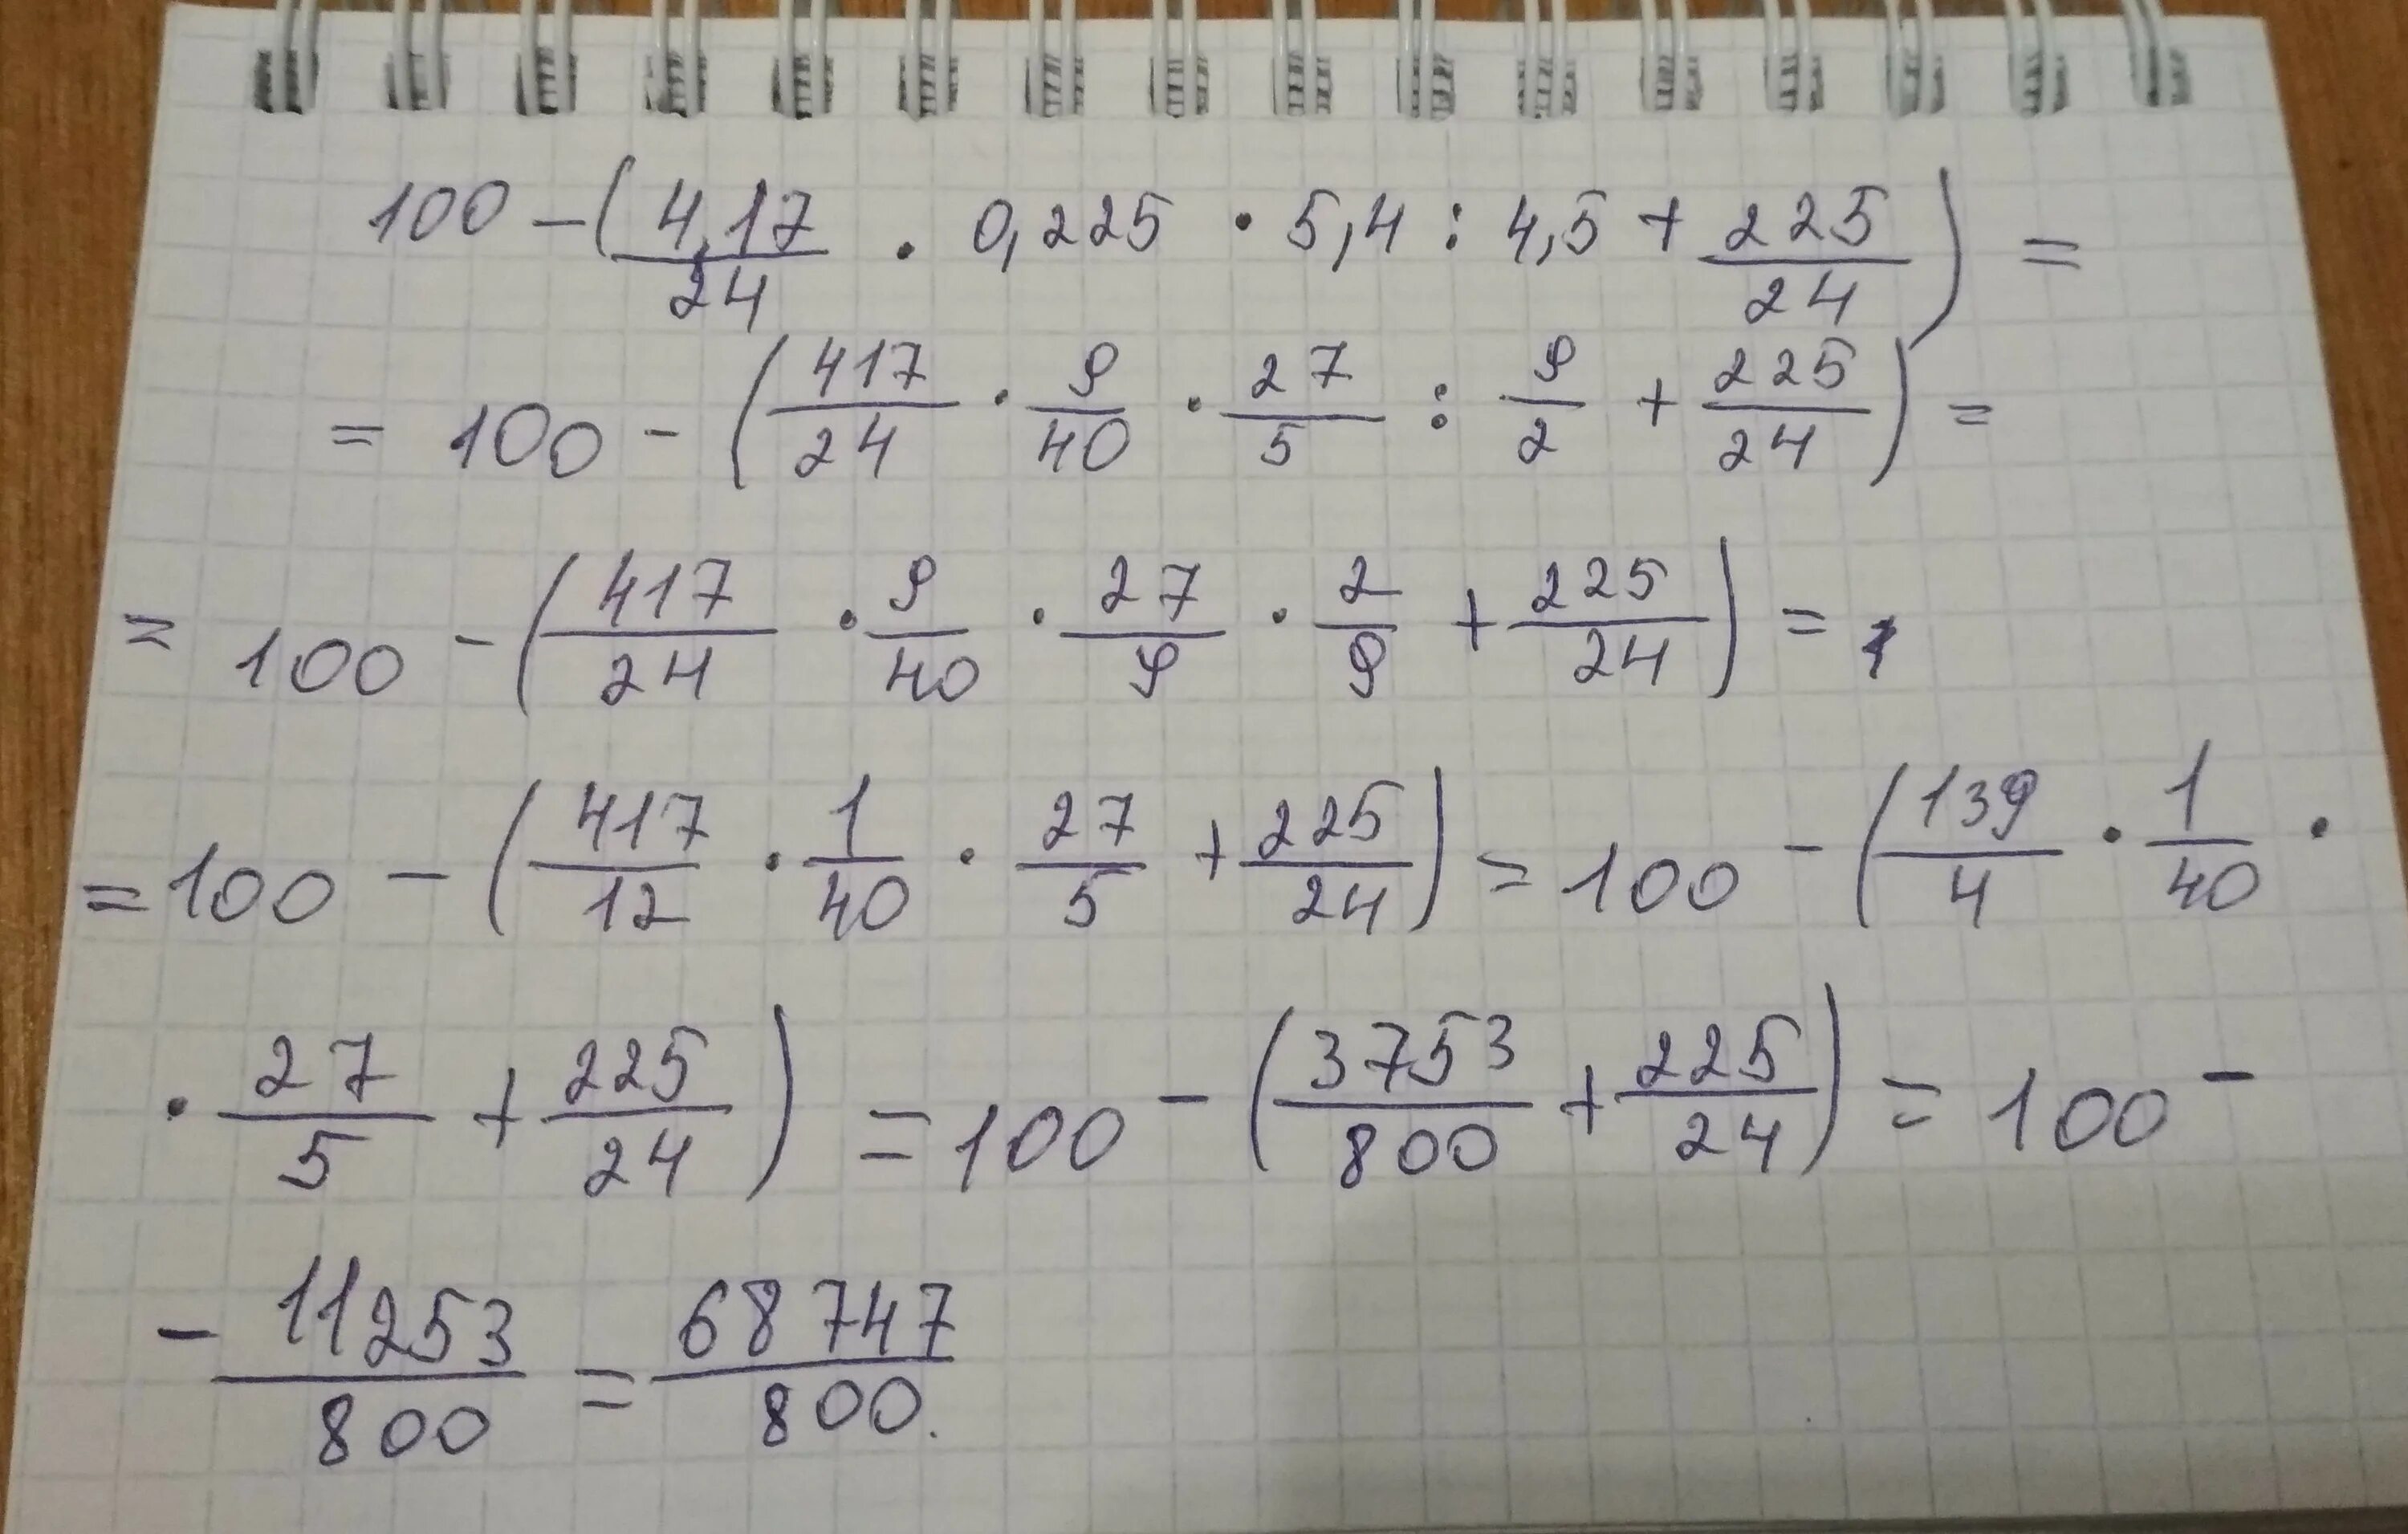 100 - (4,17/24 · 0,225 · 5,4 : 4,5 + 225/24) =
= 100 - (417/24 · 9/40 · 27/5 : 9/2 + 225/24) =
= 100 - (417/24 · 9/40 · 27/9 · 2/9 + 225/24) =
= 100 - (417/12 · 1/40 · 27/5 + 225/24) = 100 - (139/4 · 1/40 ·
· 27/5 + 225/24) = 100 - (3753/800 + 225/24) = 100 -
- 11253/800 = 68747/800.